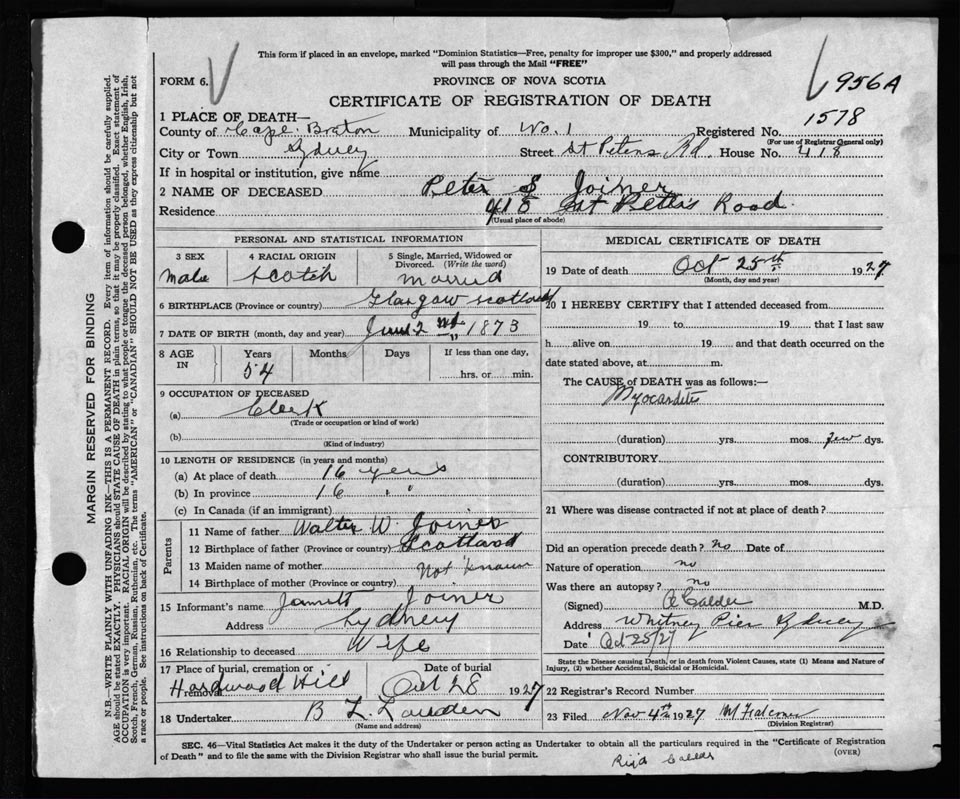 This form if placed in an envelope, marked "Dominion Statistics—Free, penalty for improper use $300," and properly addressed
will pass through the Mail "FREE"
FORM 6.
PROVINCE OF NOVA SCOTIA
956A
CERTIFICATE OF REGISTRATION OF DEATH
1578
1 PLACE OF DEATH—
County of Cape Breton Municipality of No. 1 Registered No.
(For use of Registrar General only)
City or Town Sydney Street St Peters Rd. House No. 418
If in hospital or institution, give name
2 NAME OF DECEASED Peter S Joiner
Residence 418 St Peters Road
(Usual place of abode)
PERSONAL AND STATISTICAL INFORMATION
3 SEX
Male
4 RACIAL ORIGIN
Scotch
5 Single, Married, Widowed or
Divorced. (Write the word)
Married
6 BIRTHPLACE (Province or country) Glasgow Scotland
7 DATE OF BIRTH (month, day and year) June 2 nd 1873
8 AGE IN
Years Months Days If less than one day,
54 hrs. or min.
9 OCCUPATION OF DECEASED
(a) Clerk
(Trade or occupation or kind of work)
(b)
(Kind of industry)
10 LENGTH OF RESIDENCE (in years and months)
(a) At place of death 16 years
(b) In province 16 " "
(c) In Canada (if an immigrant)
Parents
11 Name of father Walter W. Joiner
12 Birthplace of father (Province or country) Scotland
13 Maiden name of mother Not known
14 Birthplace of mother (Province or country)
15 Informant's name Joiner
Address Sydney
16 Relationship to deceased Wife
17 Place of burial, cremation or removal
Hardwood Hill
Date of burial
Oct 28 1927
18 Undertaker B L
(Name and address)
MEDICAL CERTIFICATE OF DEATH
19 Date of death Oct 25th 1927
(Month, day and year)
20 I HEREBY CERTIFY that I attended deceased from
19 to 19 that I last saw
h alive on 19 and that death occurred on the
date stated above, at m.
The CAUSE of DEATH was as follows:—
Myocarditis
(duration) yrs. mos. few dys.
CONTRIBUTORY
(duration) yrs. mos. dys.
21 Where was disease contracted if not at place of death?
Did an operation precede death? no Date of
Nature of operation no
Was there an autopsy? no
(Signed) A Calder M.D.
Address Whitney Pier Sydney
Date Oct 25/27
State the Disease causing Death, or in death from Violent Causes, state (1) Means and Nature of
Injury, (2) whether Accidental, Suicidal or Homicidal.
22 Registrar's Record Number
23 Filed Nov 4th 1927 M Falconer
(Division Registrar)
SEC. 46—Vital Statistics Act makes it the duty of the Undertaker or person acting as Undertaker to obtain all the particulars required in the "Certificate of Registration
of Death" and to file the same with the Division Registrar who shall issue the burial permit.
(OVER)
Calder
MARGIN RESERVED FOR BINDING
N.B.—WRITE PLAINLY WITH UNFADING INK—THIS IS A PERMANENT RECORD. Every item of information should be carefully supplied.
AGE should be stated EXACTLY. PHYSICIANS should STATE CAUSE OF DEATH in plain terms, so that it may be properly classified. Exact statement of
OCCUPATION is very important. RACIAL ORIGIN will be described by stating to what people or tongue the deceased person belonged, whether English, Irish,
Scotch, French, German, Russian, Ruthenian, etc. The terms "AMERICAN" or "CANADIAN" SHOULD NOT BE USED as they express citizenship but not
a race or people. See instructions on back of Certificate.